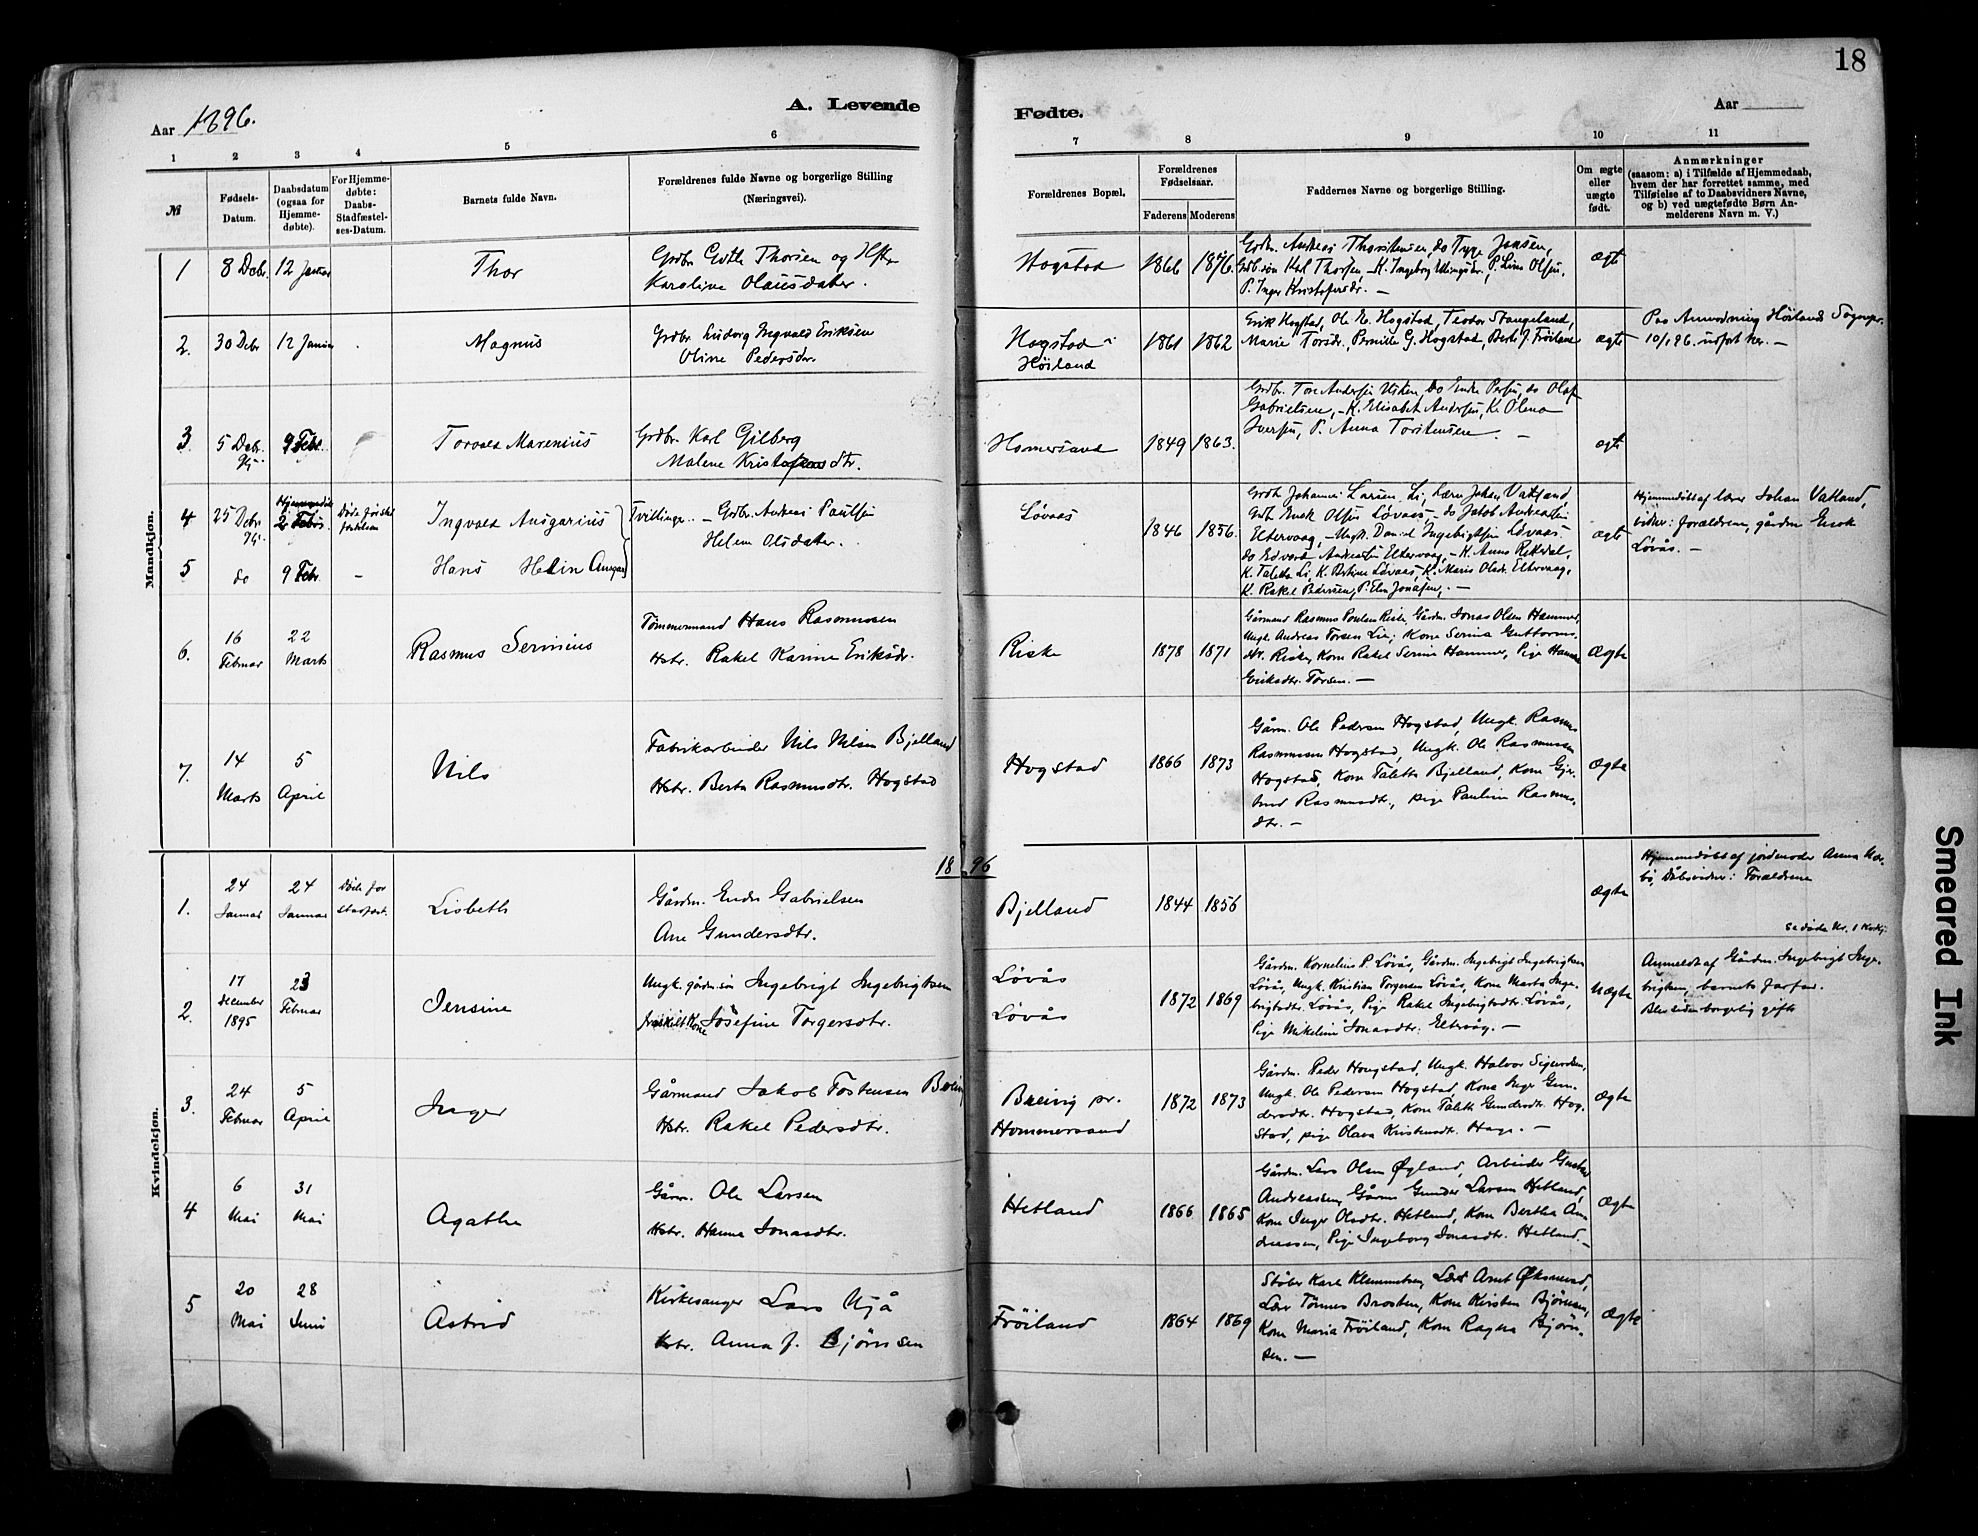 18
Aar 1896.
A. Levende
Fødte.
Aar
1 2 3 4 5 6 7 8 9 10 11
№
Fødsels-
Datum.
Daabsdatum
(ogsaa for
Hjemme-
døbte).
For Hjemme-
døbte:
Daabs-
Stadfæstel-
ses-Datum.
Barnets fulde Navn.
Forældrenes fulde Navne og borgerlige Stilling
(Næringsvei).
Forældrenes Bopæl.
Forældrenes
Fødselsaar.
Faderens Moderens
Faddernes Navne og borgerlige Stilling.
Om ægte
eller
uægte
født.
Anmærkninger
(saasom: a) i Tilfælde af Hjemmedaab,
hvem der har forrettet samme, med
Tilføielse af to Daabsvidners Navne,
og b) ved uægtefødte Børn An-
melderens Navn m. V.)
Mandkjøn.
1 8 Decbr. 12 Januar
Thor
Grdbr. Thorsen og Hstr
Karoline Olausdater.
Hogstad
1866 1876.
Grdbr. Andreas Thorstensen, do Jansen,
Karl Thorsen, K. Ingeborg P. Line Olsen,
P. Inger Kristofersdr. —
ægte
2. 30 Debr 12 Januar
Magnus
Grdbr Ludvig Ingvald Eriksen
Oline Pedersdr.
Hogstad i
Høiland
1861 1862
Erik Hogstad, Ole N. Hogstad, Teodor Stangeland,
Marie Torsdr., Pernille G. Hogstad, Berte J. Frøiland
ægte
Paa Anvodning Høilands Sognepr.
10/1 96. udført her. —
3. 5 Debr. 9 Febr.
Torvald Marenius
Grdbr. Karl Gilberg
Malene Kristofersdtr.
Homersand
1849 1863.
Grdbr. Tore Andersen do Endre Persen, do Olaf
Gabrielsen, K. Elisabet Andersen, K. Olena
Iversen, P. Anna Torstensen. —
ægte
4 25 Debr 2 Febr.
Døde før
Ingvald Ansgarius
Tvillinge. — Grdbr. Andreas Paulsen
Helene Olsdater.
Løvaas
1846 1856.
Grdbr. Johannes Larsen Li, Lærer Johan Vatland
Enok Olsen Løvaas, do Jakob Andreassen
Eltervaag, Ungk. Daniel Ingebrigtsen Løvaas
do Edvard Andreassen Eltervaag, K. Anna Rekedal,
K. Taletta Li, K. Bertine Løvaas, K. Maria Olsdr. Eltervaag,
K. Rakel Pedersen, P. Elen Jonasen, —
ægte
Hjemmedøbt af lærer Johan Vatland,
vidner: forældrene, gårdm Enok
Løvås. —
5 do 9 Febr. —
Hans Helin
6. 16 Februar 22 Marts
Rasmus Serinius
Tømmermand Hans Rasmussen
Hstr. Rakel Karine Eriksdr.
Riske
1878 1871
Gårmand Rasmus Poulsen Riske, Gårdm. Jonas Olsen Hammer,
Ungk. Andreas Torsen Lie; Kone Serina Guttorms-
dtr. Riske, Kone Rakel Serine Hammer, Pige Hanna
Eriksdtr. Torsen. —
Ægte
7. 14 Marts 5 April
Nils
Fabrikarbeider Nils Nilsen Bjelland
Hstr. Berta Rasmusdtr. Hogstad
Hogstad
1866 1873
Gårm. Ole Pedersen Hogstad, Ungk. Rasmus
Rasmussen Hogstad, Ungk. Ole Rasmussen
Hogstad, Kone Taletta Bjelland, Kone Gjer-
trud Rasmusdtr., pige Pauline Rasmus-
dtr. —
Ægte
18 96
Kvindekjøn.
1. 24 Januar 24 Januar
Døde før
stadfæst.
Lisbeth
Gårdm. Endre Gabrielsen
Ane Gundersdtr.
Bjelland
1844 1856
Ægte
Hjemmedøbt af jordemoder Anna
Dåbsvidner: Forældrene
Se døde Nr. 1 Kvkj.
2. 17 December 1895 23 Februar
Jensine
Ungk. gårdm. søn Ingebrigt Ingebrigtsen
fraskilt Kone Josefine Torgersdtr.
Løvås
Løvås
1872 1869
Gårdm. Kornelius P. Løvås, Gårdm. Ingebrigt Ingebrigtsen
Løvås, Ungk. Kristian Torgersen Løvås, Kone Marta Inge-
brigtsdtr. Løvås, Pige Rakel Ingebrigtsdtr. Løvås,
Pige Mikeline Jonasdtr. Eltervåg. —
Uægte
Anmeldt af Gårdm. Ingebrigt Inge-
brigtsen, barnets farfar.
Blev siden borgelig gifte
3. 24 Februar 5 April
Inger
Gårmand Jakob Tostensen Breivig
Hstr. Rakel Pedersdtr.
Breivig pr.
Hommersand
1872 1873
Gårdm. Peder Hougstad, Ungk. Halvor Sigurdsen,
Ungk. Ole Pedersen Hogstad, Kone Inger Gun-
dersdtr. Hogstad, Kone Taletta Gundersdtr. Hog-
stad, pige Olava Kristensdtr. Hage. —
Ægte
4 6 Mai 31 Mai
Agathe
Gårm. Ole Larsen
Hstr. Hanna Jonasdtr.
Hetland
1866 1865
Gårdm. Lars Olsen Øgland, Arbeider Gustav
Andreassen, Gårm Gunder Larsen Hetland,
Kone Inger Olsdtr. Hetland, Kone Bertha An-
dreassen, Pige Ingeborg Jonasdtr. Hetland. —
Ægte
5 20 Mai 28 Juni
Astrid
Kirkesanger Lars Ujå
Hstr. Anna f. Bjørnsen
Frøiland
1864 1869
Støber Karl Klemmetsen, Lærer Arnt Øksnevad,
Lærer Tønnes Brosten, Kone Kirsten Bjørnsen,
Kone Maria Frøiland, Kone Ragna Bjørn-
sen. —
Ægte
Smeared Ink